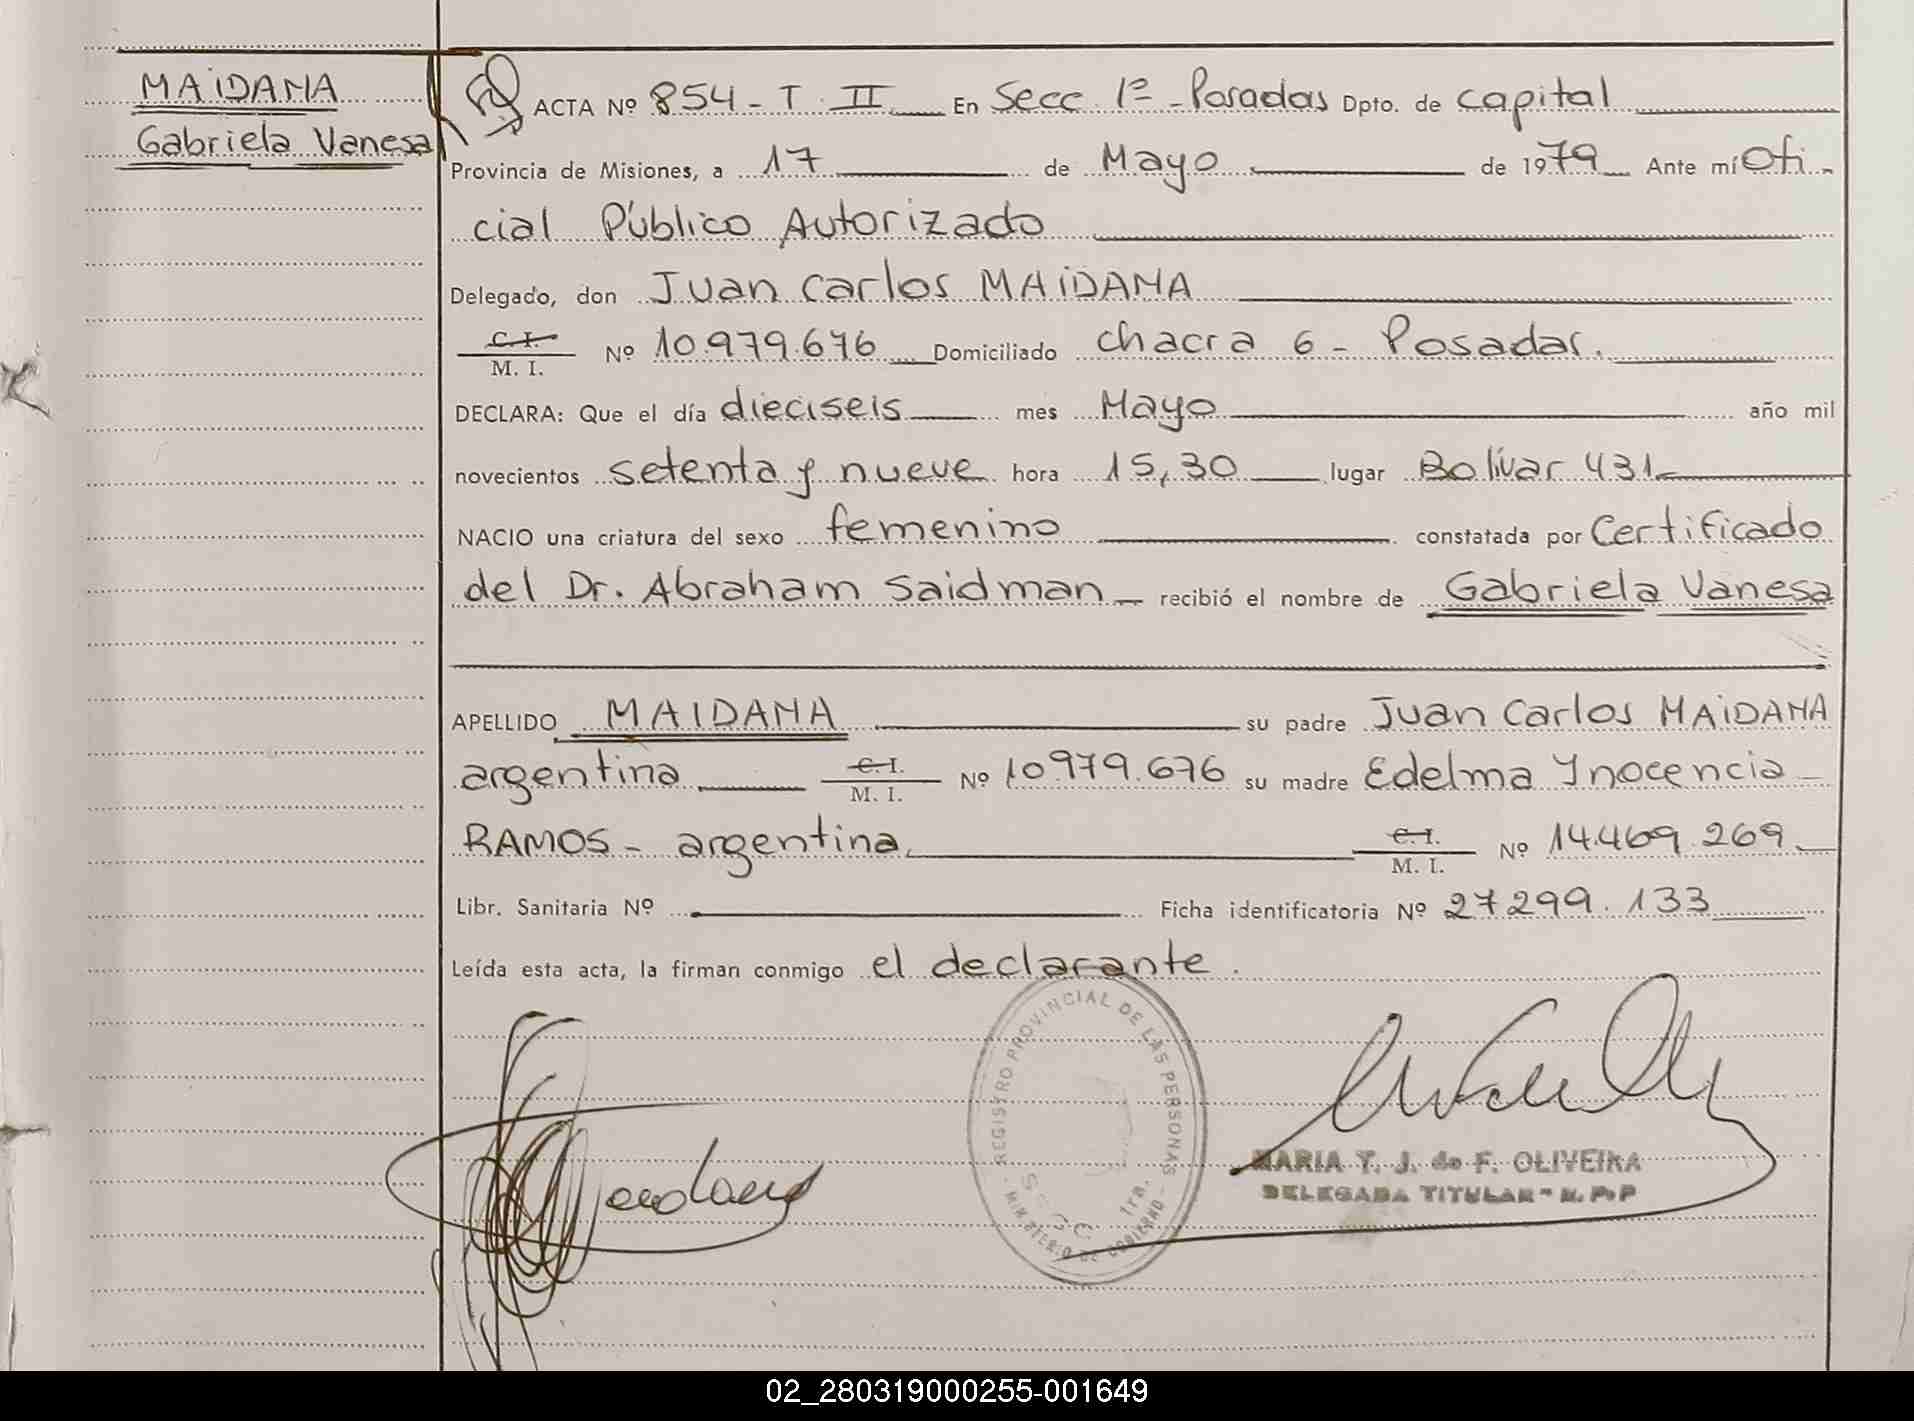 MAIDANA
Gabriela Vanesa
ACTA Nº 854 - T II En Secc 1ª - Posadas Dpto. de capital
Provincia de Misiones, a 17 de Mayo de 1979 Ante mí Ofi-
cial Público Autorizado
Delegado, don Juan Carlos MAIDANA
C. I.
M. I. Nº 10.979.676 Domiciliado chacra 6 - Posadas.
DECLARA: Que el día dieciseis mes Mayo año mil
novecientos setenta y nueve hora 15,30 lugar Bolívar 431
NACIO una criatura del sexo femenino constatada por Certificado
del Dr. Abraham Saidman - recibió el nombre de Gabriela Vanesa
APELLIDO MAIDANA su padre Juan Carlos MAIDANA
argentina C. I.
M. I. Nº 10.979.676 su madre Edelma Ynocencia
RAMOS - argentina C. I.
M. I. Nº 14.469.269
Libr. Sanitaria Nº Ficha identificatoria Nº 27299.133
Leída esta acta, la firman conmigo el declarante.
REGISTRO PROVINCIAL DE LAS PERSONAS
- MINISTERIO DE GOBIERNO -
Secc. 1ra.
MARIA T. J. de F. OLIVEIRA
DELEGADA TITULAR - R. P. P
02_280319000255-001649